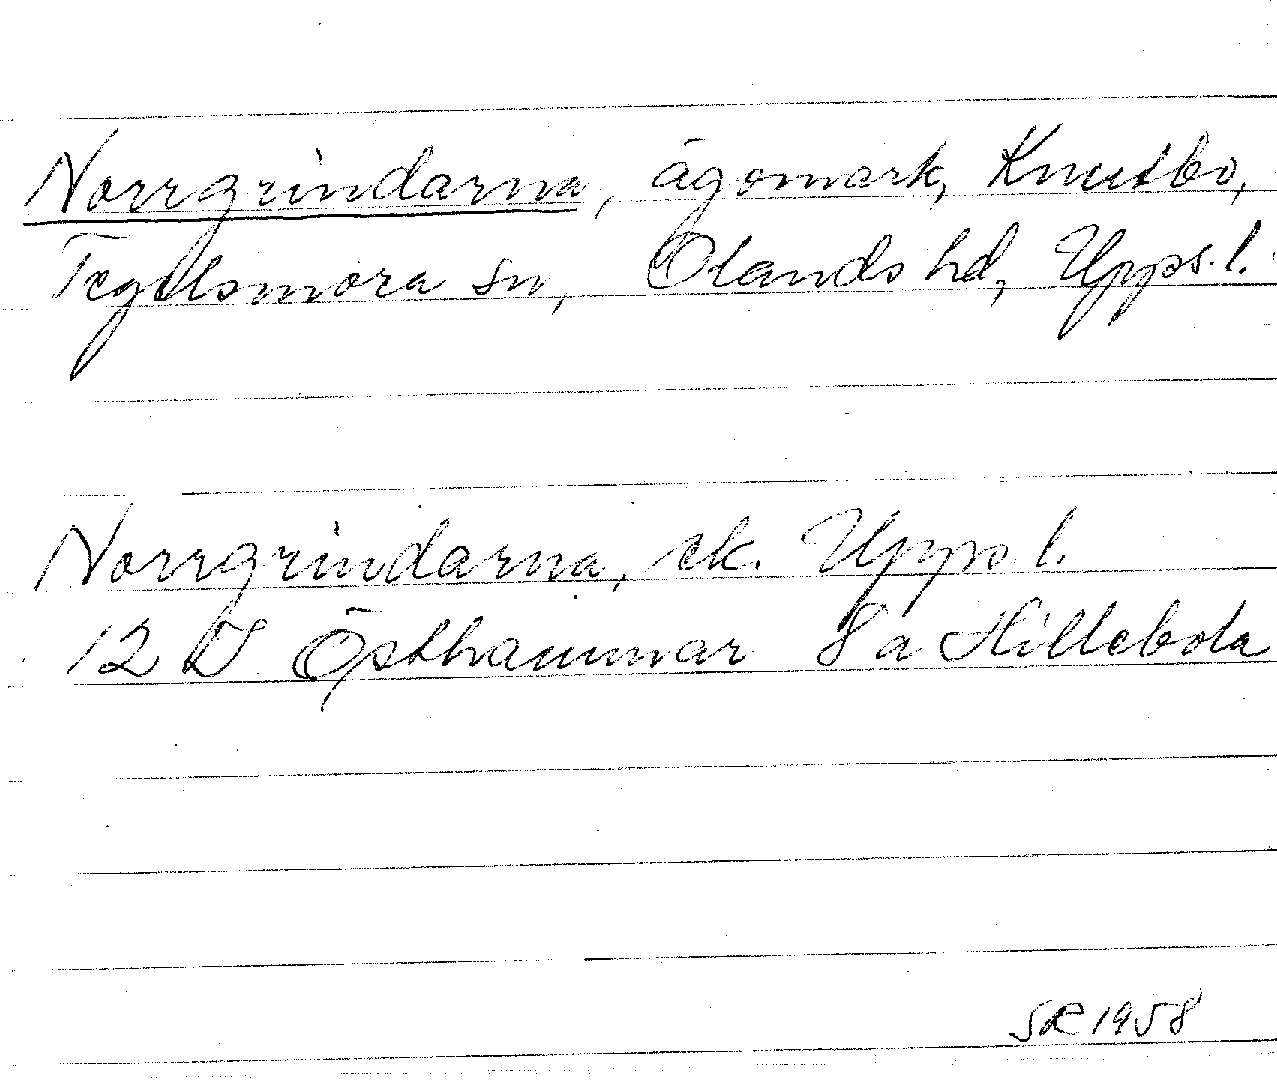 Norrgrindarna, ägomark, Knutbo,
Tegelsmora sn, Olands hd, Upps.l.
Norrgrindarna, ek. Upps l.
12 I Östhammar 8 a Hillebola
SR 1958